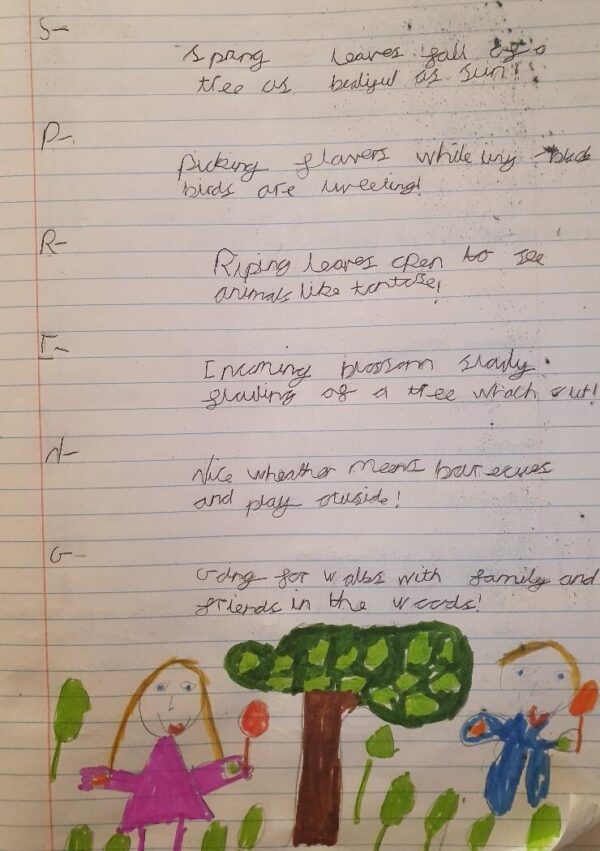 S-
Spring leaves fall of a
tree as beatiful as sun!
P-
Picking flavers while iny
birds are tweeting!
R-
Riping leaves open to see
animals like tortose!
I-
Incoming blossom slowly
of a tree watch out!
N-
Nice wheather means barbecues
and play outside!
G-
Going for walks with family and
friends in the woods!